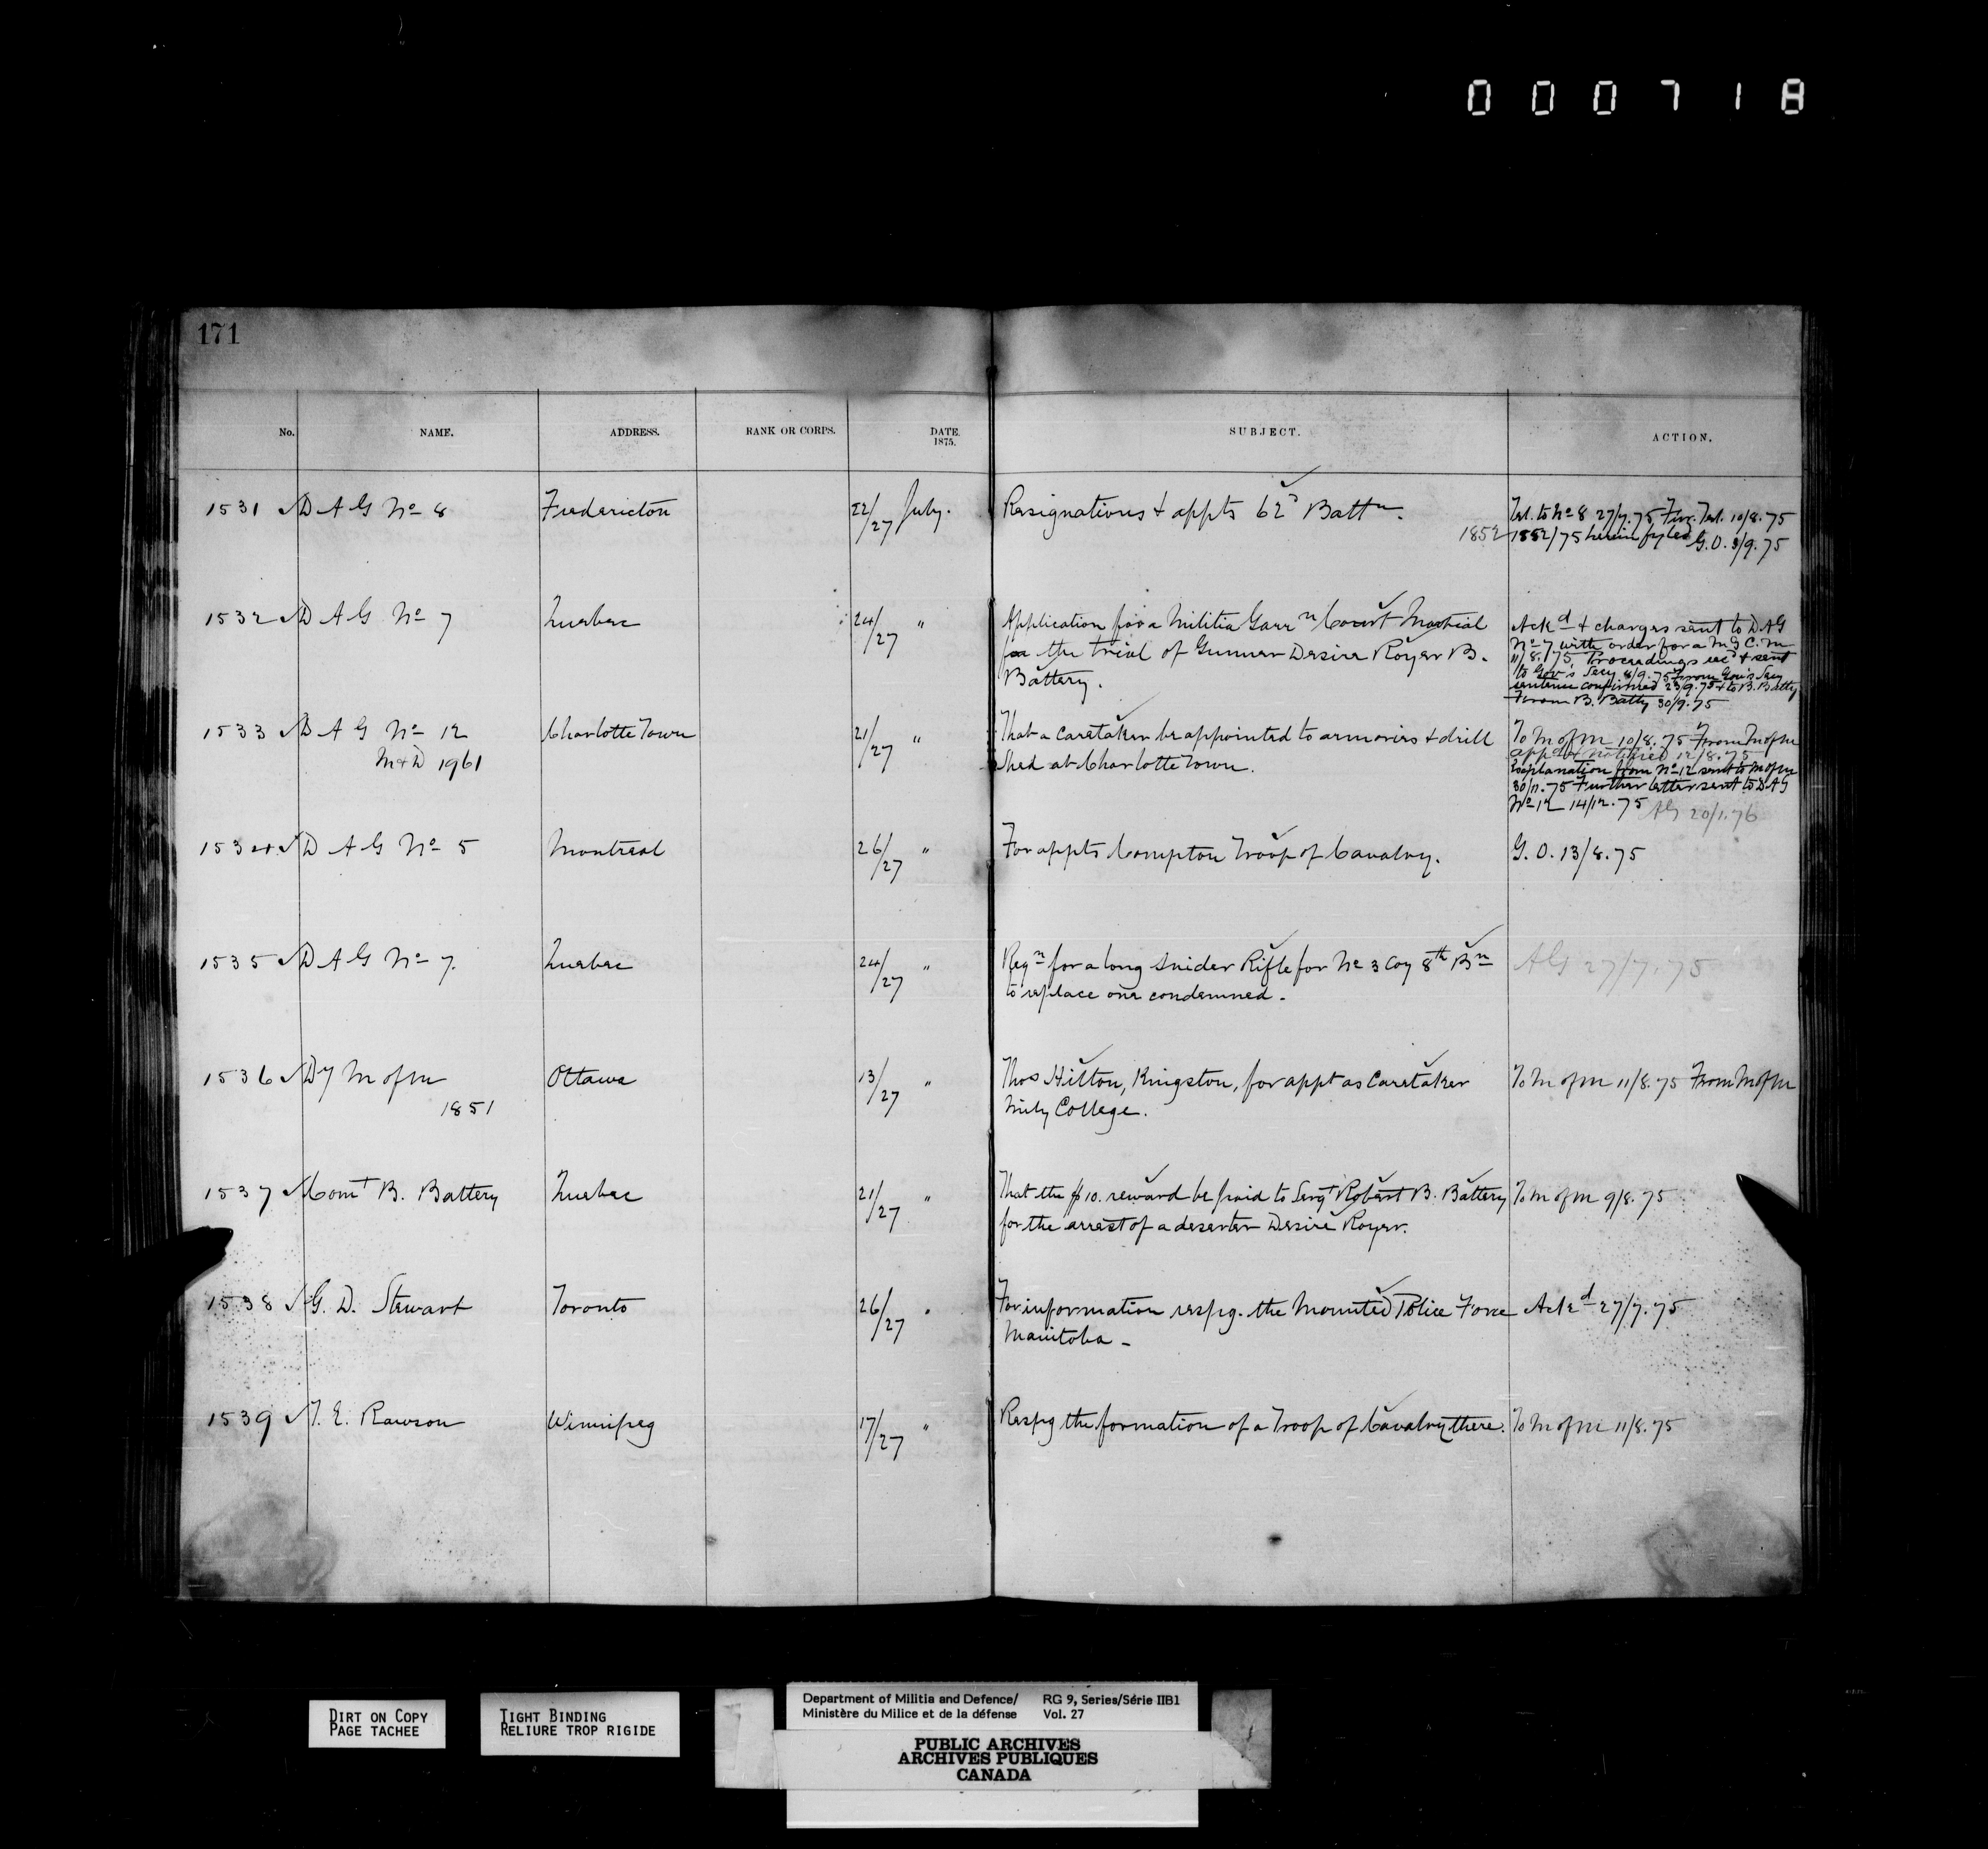 000718
171
No. NAME. ADDRESS. RANK OR CORPS. DATE. 1875. SUBJECT. ACTION.
1531 D A G No 8 Fredericton 22/27 July. Resignations & appts 62d Battn. Tel. to No 8 27/7.75 Tel. 10/8.75
1852 1852/75 herein fyled G.O. 3/9.75
1532 D A G No 7 Quebec 24/27 " Application for a Militia Garrn Court Martial Ackd & charges sent to DAG
for the trial of Gunner Desire Royer B. No 7 with order for a M G C. M
Battery. 11/8.75. Proceedings recd & sent
to Gov's Secy 8/9.75 From Gov's Secy
sentence confirmed 23/9.75 & to B. Batty
From B. Batty 30/9.75
1533 D A G No 12 Charlotte Town 21/27 " That a caretaker be appointed to armories & drill To M of M 10/8.75 From M of M
M&D 1961 shed at Charlotte Town. appd & notified 12/8.75
Explanation from No 12 sent to M of M
30/11.75 Further letter sent to DAG
No 12 14/12.75 AG 20/1.76
1534 D A G No 5 Montreal 26/27 " For appts Compton Troop of Cavalry. G.O. 13/8.75
1535 D A G No 7. Quebec 24/27 " Reqn for a long Snider Rifle for No 3 Coy 8th Bn AG 27/7.75
to replace one condemned.
1536 Dy M of M Ottawa 13/27 " Thos Hilton, Kingston, for appt as Caretaker To M of M 11/8.75 From M of M
1851 Mily College.
1537 Comt B. Battery Quebec 21/27 " That the $10. reward be paid to Sergt Robert B. Battery To M of M 9/8.75
for the arrest of a deserter Desire Royer.
1538 G. D. Stewart Toronto 26/27 " For information respg. the Mounted Police Force Ackd 27/7.75
Manitoba -
1539 T. E. Rawson Winnipeg 17/27 " Respg the formation of a Troop of Cavalry there. To M of M 11/8.75
DIRT ON COPY
PAGE TACHEE
TIGHT BINDING
RELIURE TROP RIGIDE
Department of Militia and Defence/ RG 9, Series/Série IIB1
Ministère du Milice et de la défense Vol. 27
PUBLIC ARCHIVES
ARCHIVES PUBLIQUES
CANADA